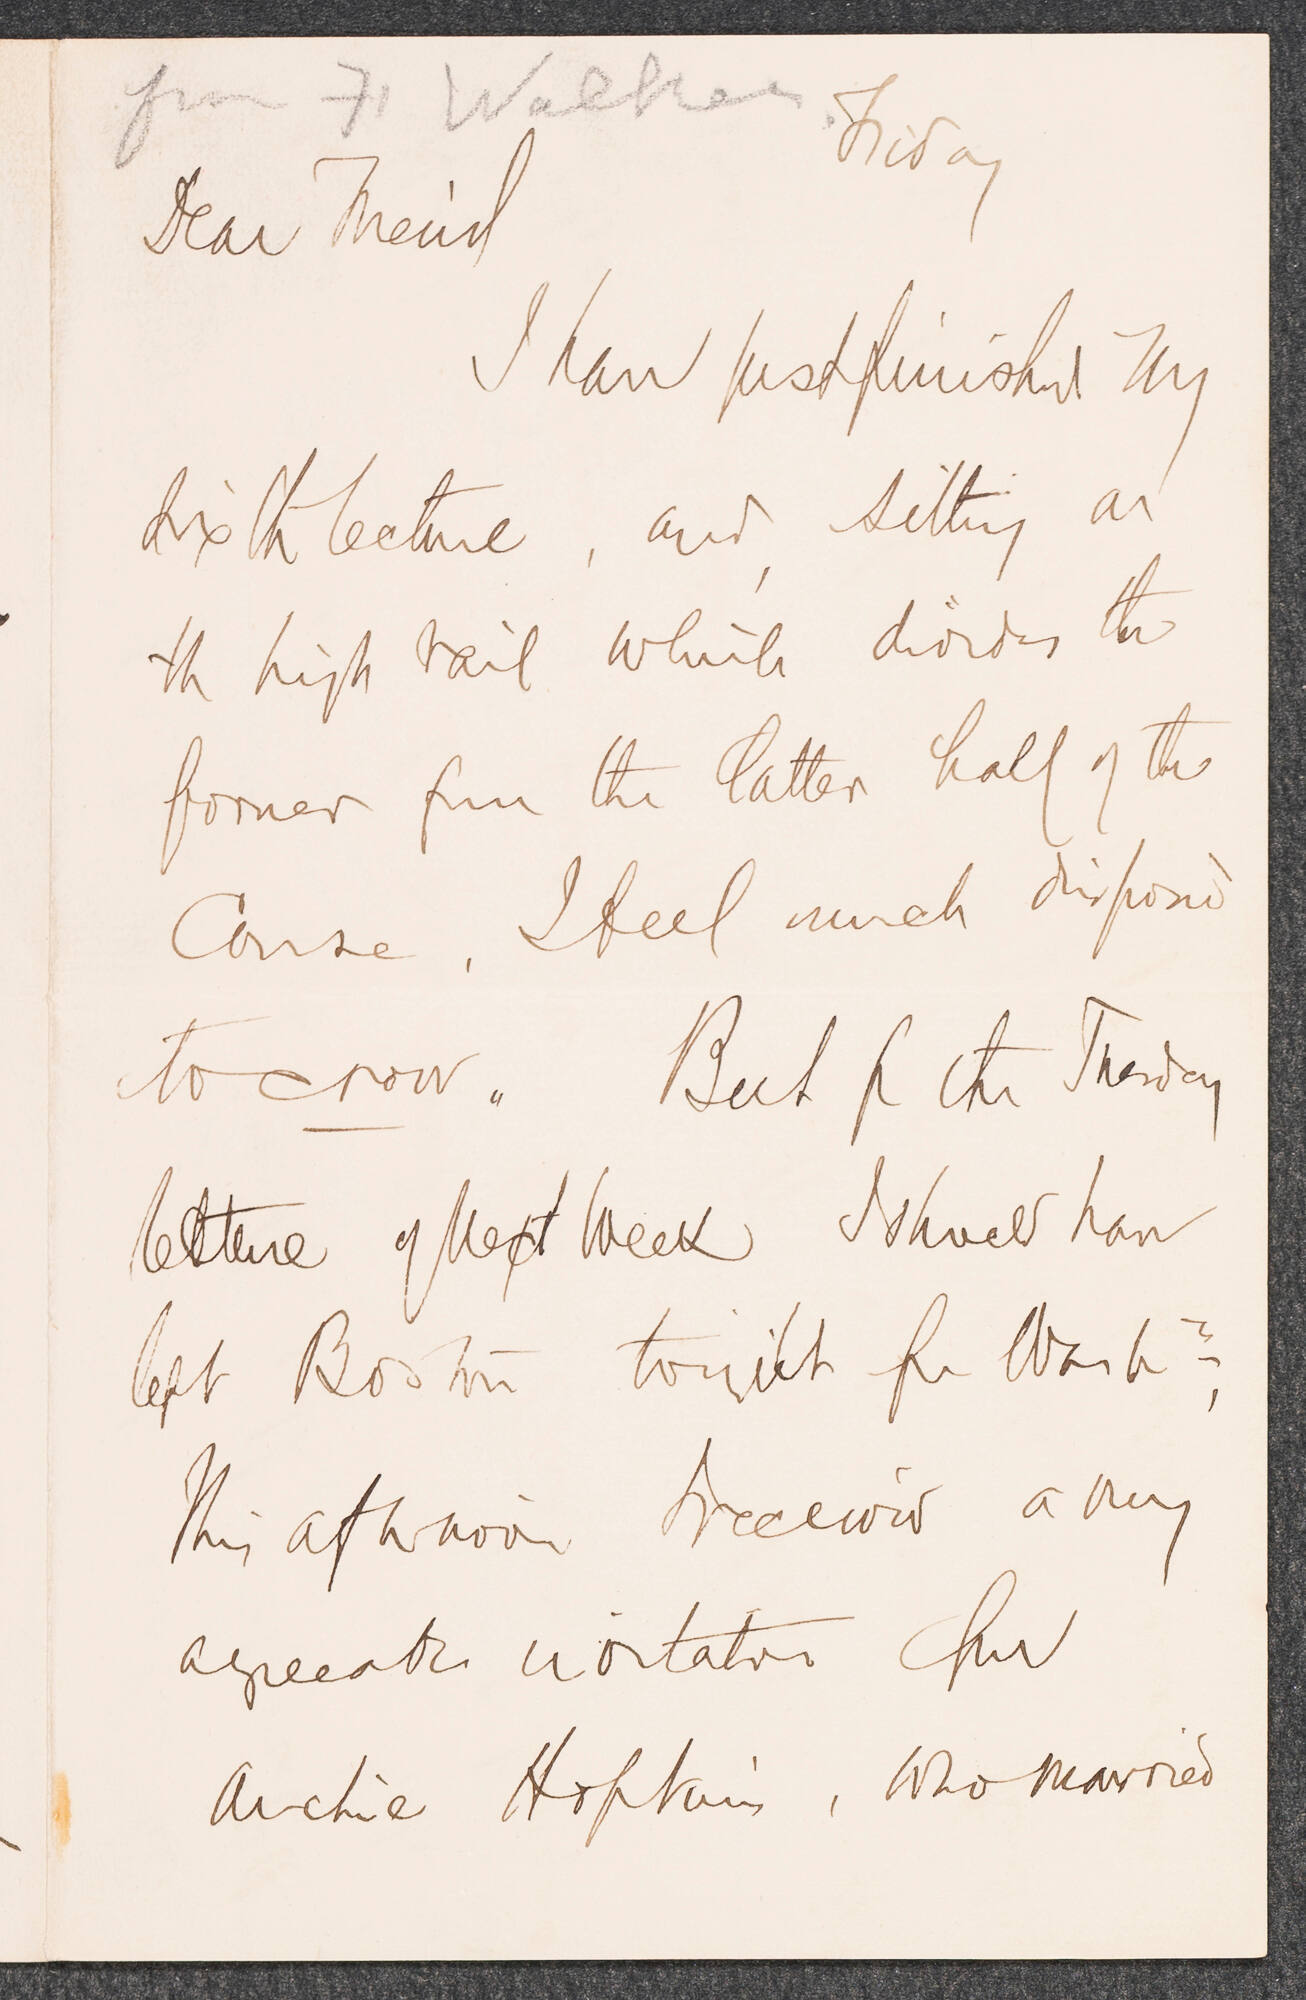 from F. Walker.
Friday
Dear Friend
I have just finished my
sixth lecture, and, sitting on
the high rail which divides the
former from the latter half of the
Course, I feel much disposed
to crow. But for the Tuesday
lecture of next week I should have
left Boston tonight for Washn,
This afternoon I received a very
agreeable visitation from
Archie Hopkins, who married